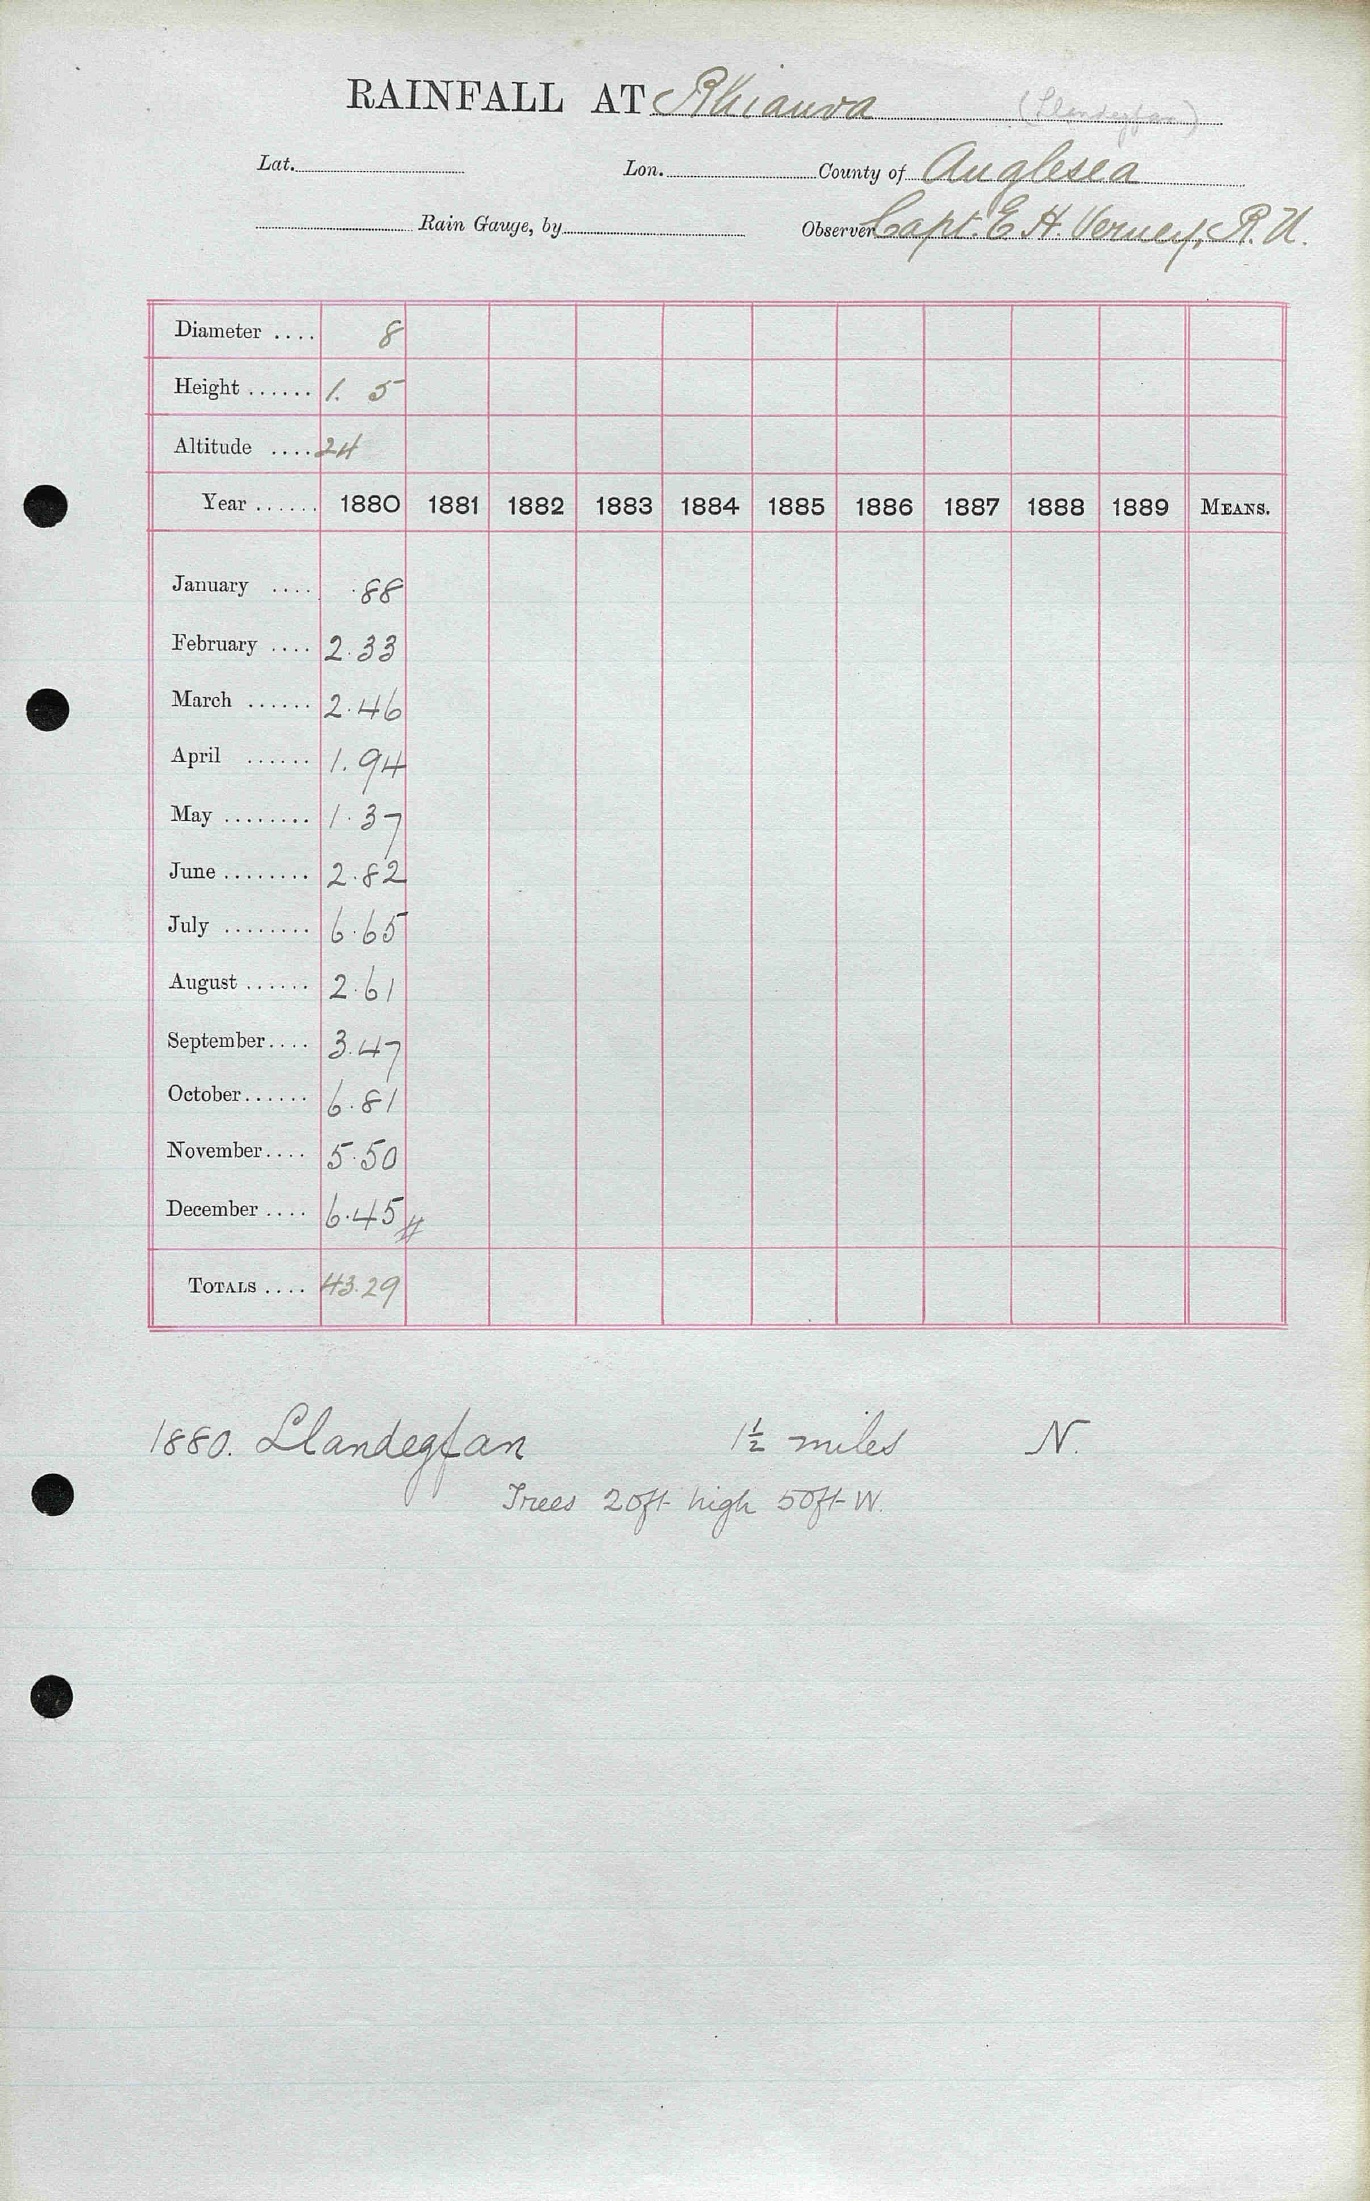 RAINFALL AT Rhianva (Llandegfan)
Lat. Lon. County of Anglesea
Rain Gauge, by Observer Capt. E. H. Verney, R.N.
Diameter .... 8
Height ...... 1. 5
Altitude .... 24
Year ...... 1880 1881 1882 1883 1884 1885 1886 1887 1888 1889 MEANS.
January .... .88
February .... 2.33
March ...... 2.46
April ...... 1.94
May ........ 1.37
June ........ 2.82
July ........ 6.65
August ...... 2.61
September.... 3.47
October...... 6.81
November.... 5.50
December .... 6.45
TOTALS .... 43.29
1880. Llandegfan 1½ miles N.
Trees 20ft high 50ft W.